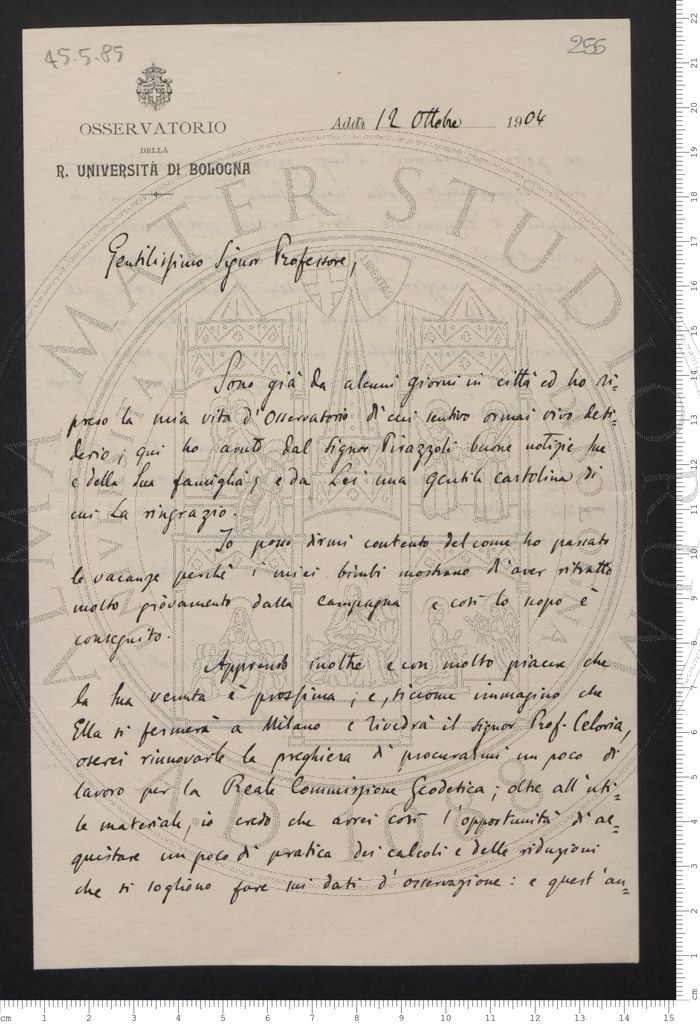 45.5.85
256
OSSERVATORIO
DELLA
R. UNIVERSITÀ DI BOLOGNA
Addì 12 Ottobre 1904
Gentilissimo Signor Professore,
Sono già da alcuni giorni in città ed ho ri=
preso la mia vita d'Osservatorio di cui sentivo ormai vivo desi=
derio; qui ho avuto dal Signor Pirazzoli buone notizie sue
e della Sua famiglia; e da Lei una gentile cartolina di
cui La ringrazio.
Io posso dirmi contento del come ho passato
le vacanze perchè i miei bimbi mostrano d'aver ritratto
molto giovamento dalla campagna e così lo scopo è
conseguito.
Apprendo inoltre e con molto piacere che
la Sua venuta è prossima; e, siccome immagino che
Ella si fermerà a Milano e rivedrà il signor Prof. Celoria,
oserei rinnovarle la preghiera di procurarmi un poco di
lavoro per la Reale Commissione Geodetica; oltre all'uti=
le materiale, io credo che avrei così l'opportunità di ac=
quistare un poco di pratica dei calcoli e delle riduzioni
che si sogliono fare sui dati d'osservazione: e quest'an=
ALMA MATER STUDIORUM
LIBERTAS
A.D. 1088
cm 1 2 3 4 5 6 7 8 9 10 11 12 13 14 15
22
21
20
19
18
17
16
15
14
13
12
11
10
9
8
7
6
5
4
3
2
1
cm